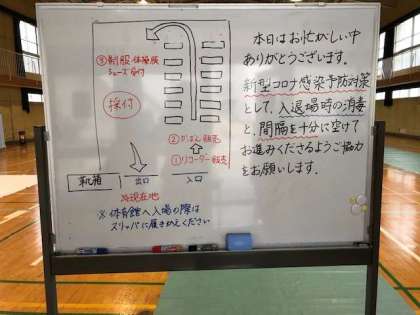 本日はお忙がしい中
ありがとうございます。
新型コロナ感染予防対策
として、入退場時の消毒
と、間隔を十分に空けて
お進みくださるようご協力
をお願いします。
③制服・体操服
シューズ受付
採寸
②かばん販売
①リコーダー販売
靴箱
出口
入口
現在地
※体育館へ入場の際は
スリッパに履きかえください